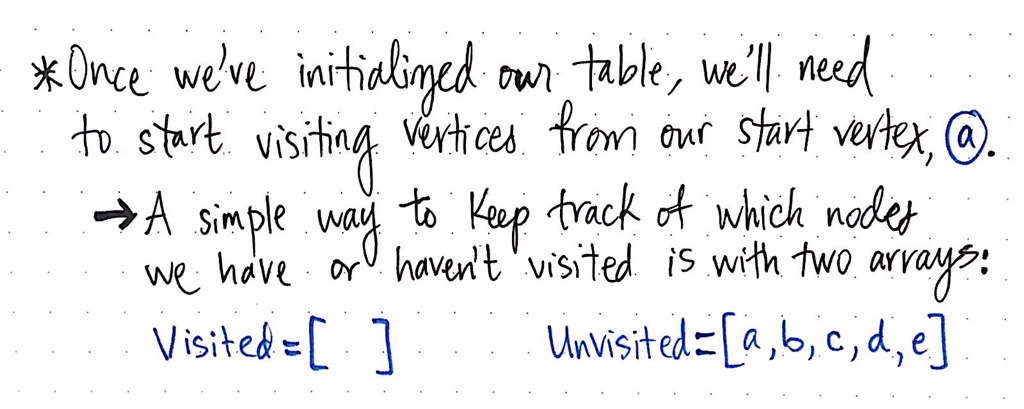 *Once we've initialized our table, we'll need
to start visiting vertices from our start vertex, a.
→ A simple way to keep track of which nodes
we have or haven't visited is with two arrays:
Visited=[ ] Unvisited=[a,b,c,d,e]